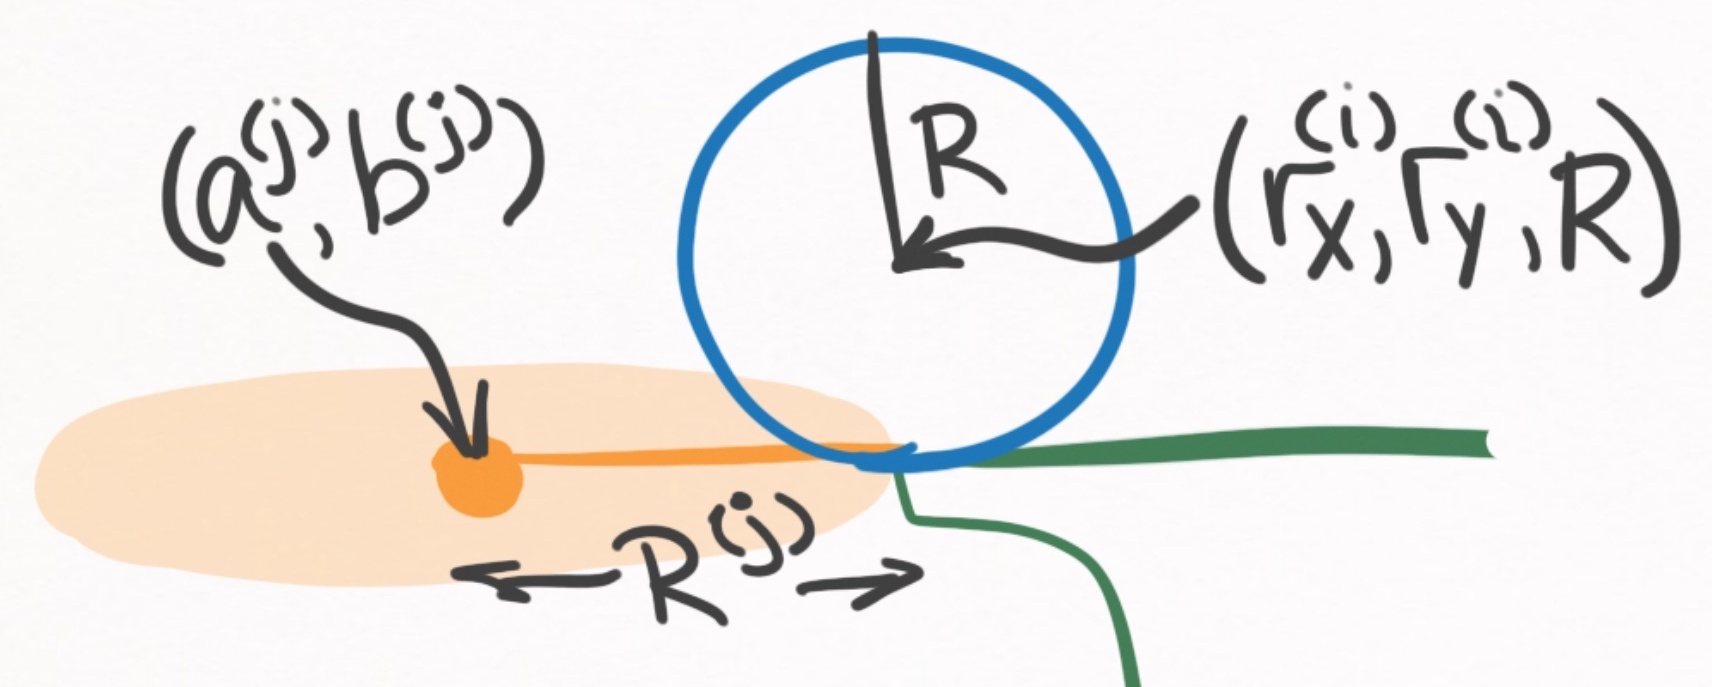 (a^(j), b^(j))
R
(r_x^(i), r_y^(i), R)
R^(j)